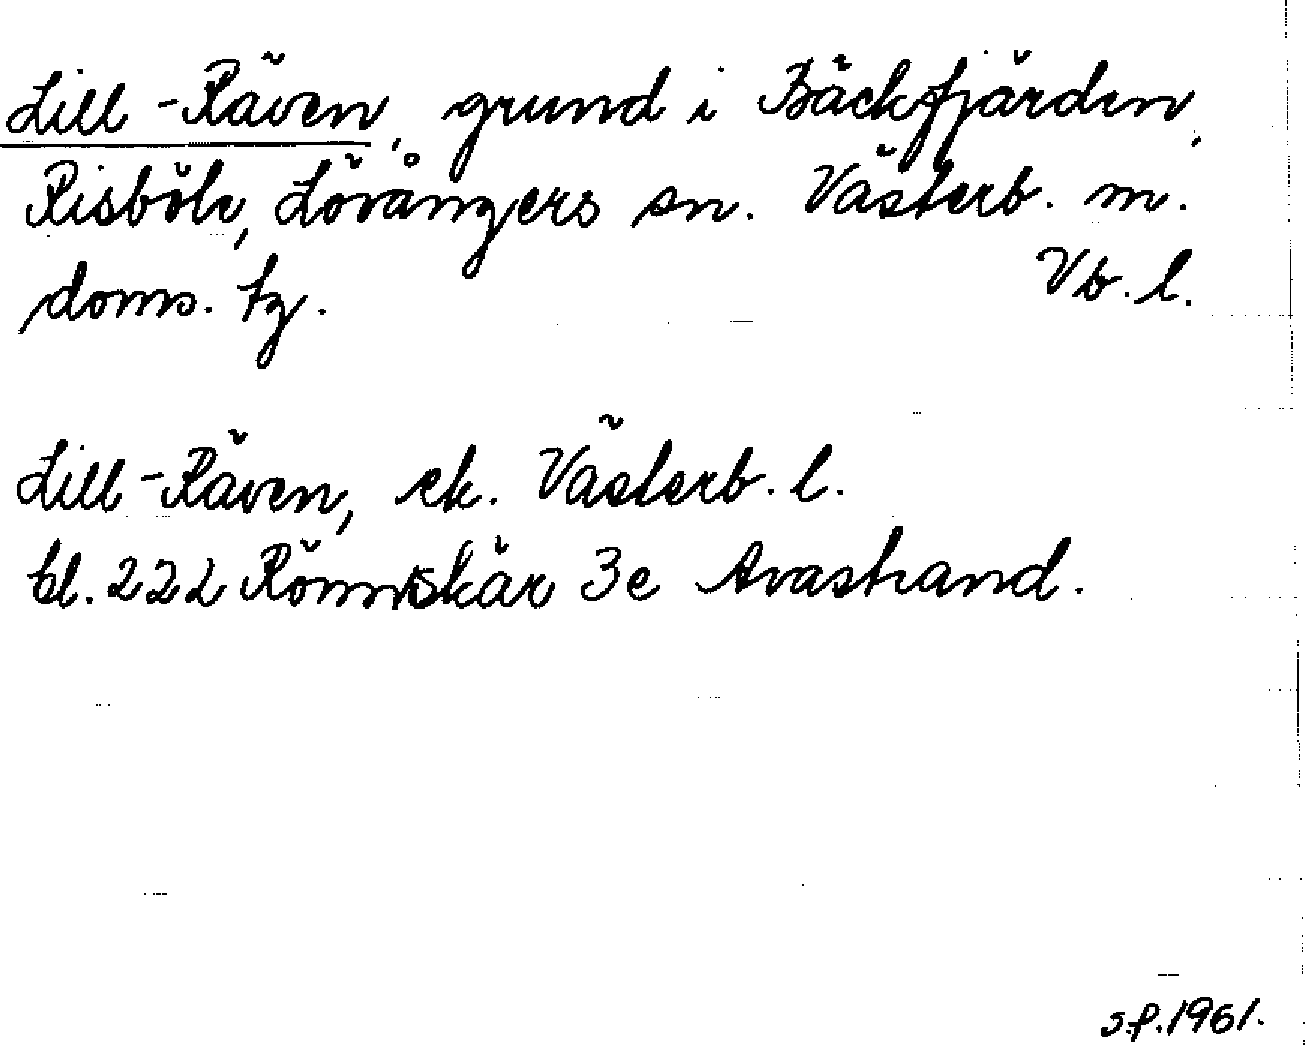 Lill-Räven, grund i Bäckfjärden,
Risböle, Lövångers sn. Västerb. m.
doms. tg. Vb. l.
Lill-Räven, ek. Västerb. l.
bl. 222 Rönnskär 3e Avastrand.
s.f. 1961.